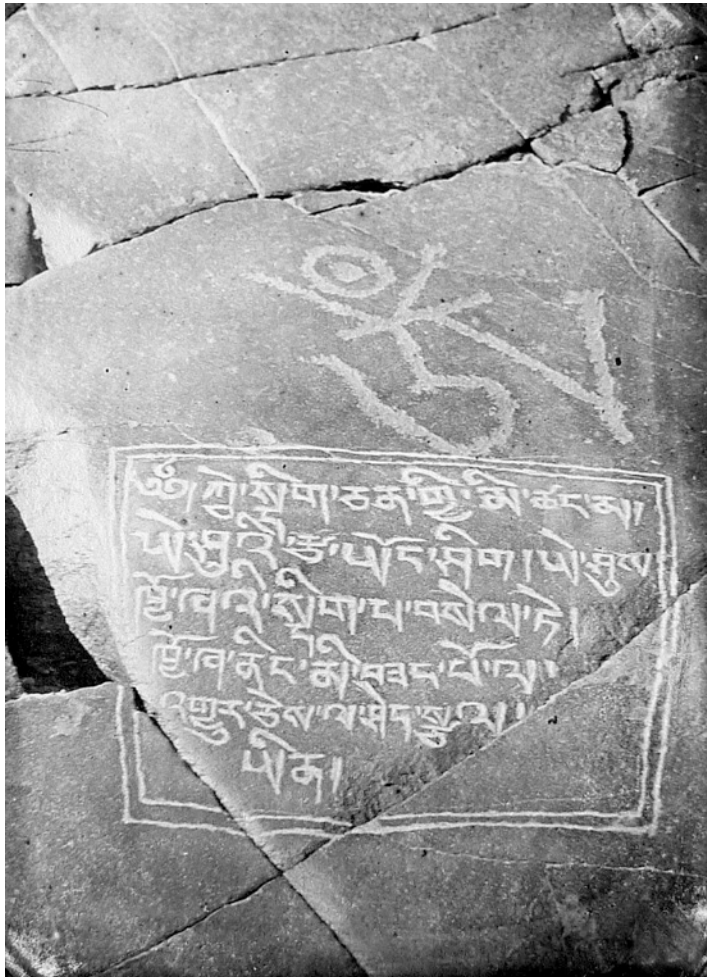 ༄། ཀྱེ་སྡིག་ཅན་གྱི་མི་ཚང་མ།
ཡེ་ཤུའི་རྩ་ཡོང་ཤིག།ཡེ་ཤུས
ཁྱོ་ཞའི་སྡིག་པ་བསེལ་ཏེ།
ཁྱོ་ཞ་ནིང་མི་བཟང་པོ་ལ།
འགྱུར་ཅེས་ལ་ཤེད་
ཡིན།